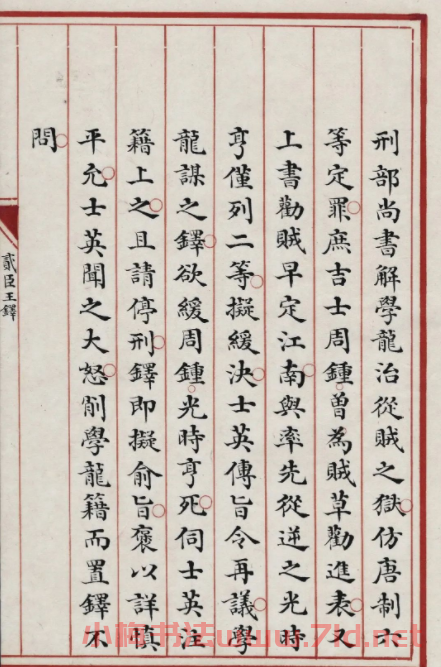 刑部尚書解學龍治從賊之獄仿唐制六
等定罪庶吉士周鍾曾為賊草勸進表又
上書勸賊早定江南與率先從逆之光時
亨僅列二等擬緩決士英傳旨令再議學
龍謀之鐸欲緩周鍾光時亨死伺士英注
籍上之且請停刑鐸即擬俞旨褒以詳慎
平允士英聞之大怒削學龍籍而置鐸不
問
貳臣王鐸
小楷书法www.7ltd.net